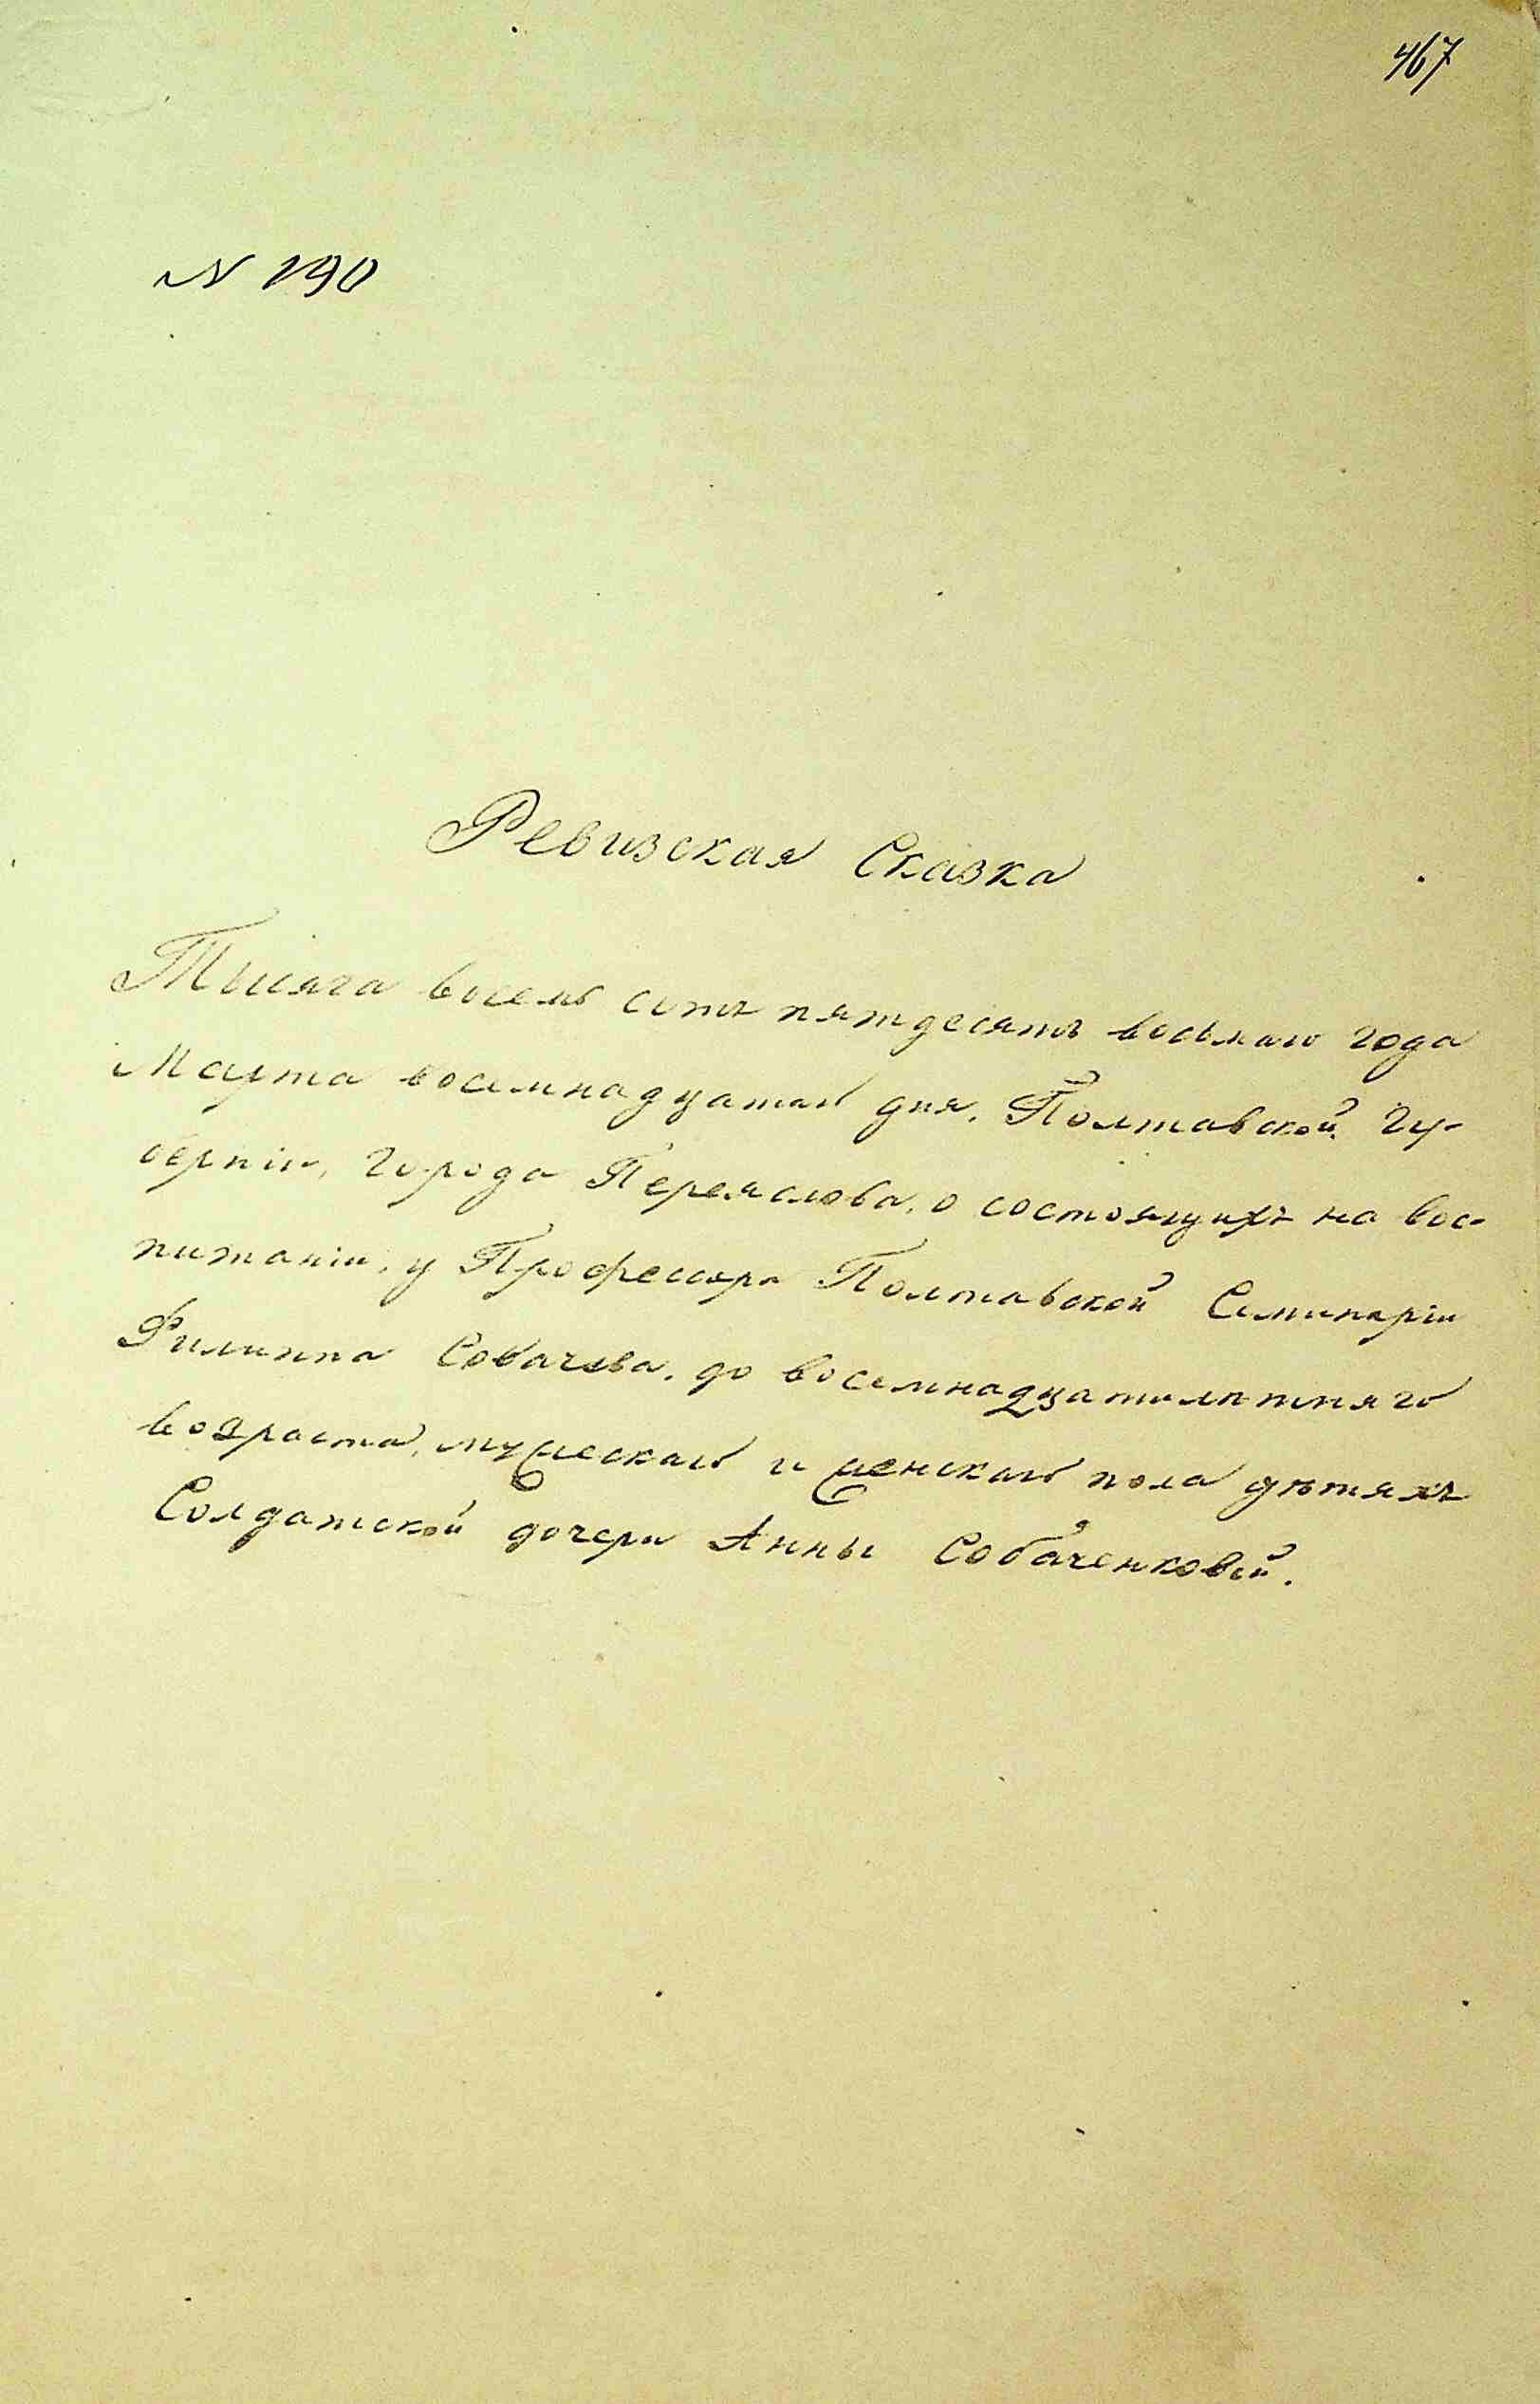 467
N 190
Ревизская Сказка
Тысяча восемь сотъ пятдесятъ восьмаго года
Марта восемнадцатаго дня, Полтавской Гу-
берніи, города Переяслова, о состоящихъ на вос-
питаніи, у Профессора Полтавской Семинаріи
Филиппа Собачева, до восемнадцатилѣтняго
возраста, мужескаго и женскаго пола дѣтяхъ
Солдатской дочери Анны Собаченковой.